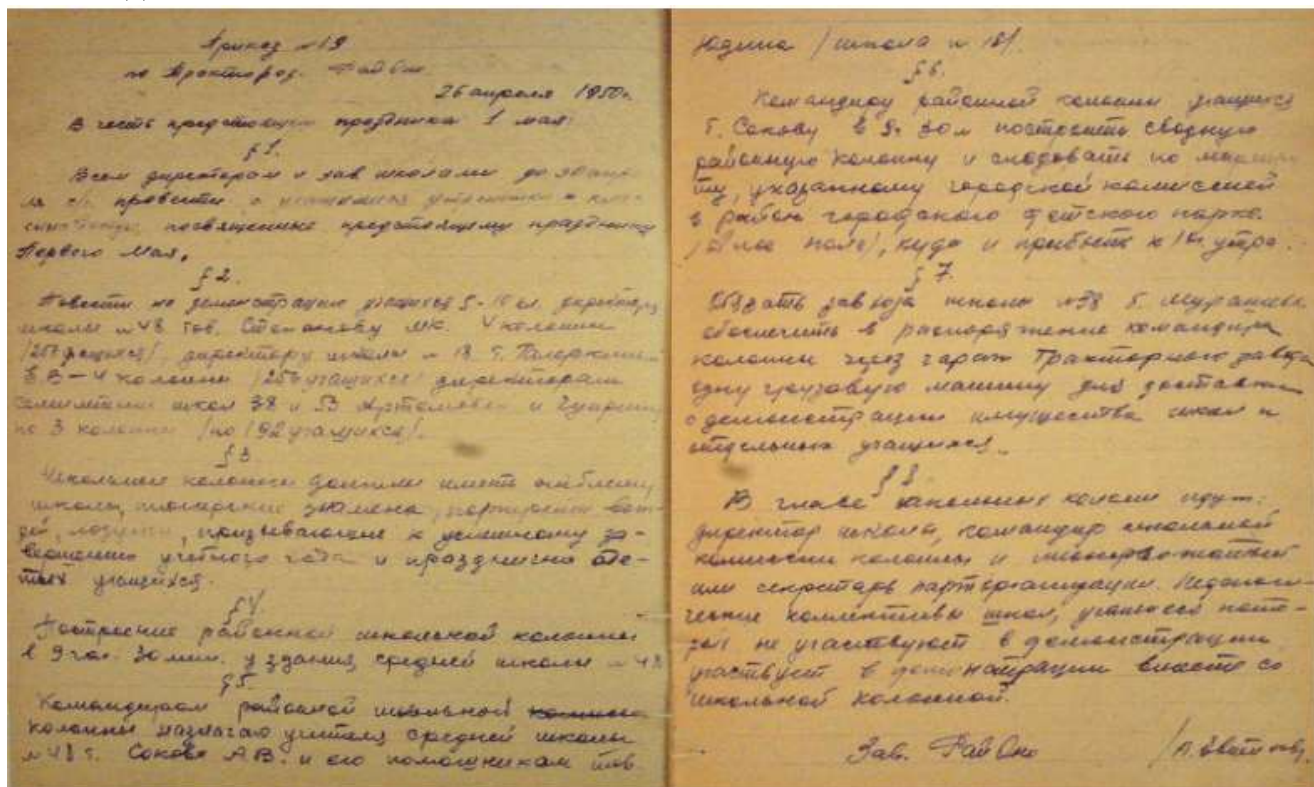 Приказ №19
по Трактороз. РайОно
26 апреля 1950г.
В честь предстоящего праздника 1 мая:
§1.
Всем директорам и зав школами до 30 апре-
ля с/г провести с учащимися утренники и
посвященные предстоящему празднику
Первого Мая.
§2.
Вывести на демонстрацию учащихся 5-10 кл. директору
школы №48 тов. Степанову МК. 4 колонны
/256 учащихся/, директору школы №18 т.
4 колонны /256 учащихся/ директорам
школ 38 и и
по 3 колонны /по 192 учащихся/.
§3
Школьные колонны должны иметь эмблему
школы, пионерские знамена, портреты вож-
дей, лозунги, призывающие к успешному за-
вершению учебного года и празднично оде-
тых учащихся.
§4.
Построение районной школьной колонны
в 9 час. 30 мин. у здания средней школы №48
§5.
Командиром районной школьной
колонны назначаю учителя средней школы
№48 т. Сокова А.В. и его помощником тов.
Юдина /школа №18/.
§6.
Командиру районной колонны учащихся
т. Сокову в 9ч 30м построить сводную
районную колонну и следовать по маршру-
ту, указанному городской комиссией
в район городского детского парка
/Алое поле/, куда и прибыть к утра.
§7.
Обязать завхоза школы №38 т.
обеспечить в распоряжение командира
колонны через гараж Тракторного завода
одну грузовую машину для доставки
с демонстрации имущества школ и
отдельных учащихся.
§8
В главе школьных колонн идут:
директор школы, командир школьной
колонны и пионервожатый
или секретарь парторганизации. Педагоги-
ческие коллективы школ, учащиеся кото-
рых не участвуют в демонстрации
участвуют в демонстрации вместе со
школьной колонной.
Зав. РайОно